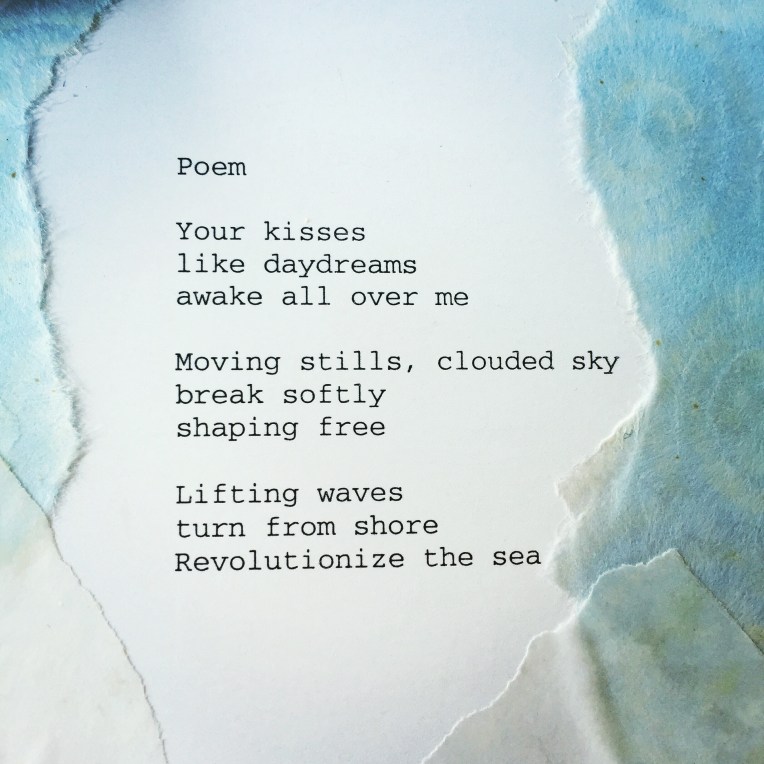 Poem
Your kisses
like daydreams
awake all over me
Moving stills, clouded sky
break softly
shaping free
Lifting waves
turn from shore
Revolutionize the sea